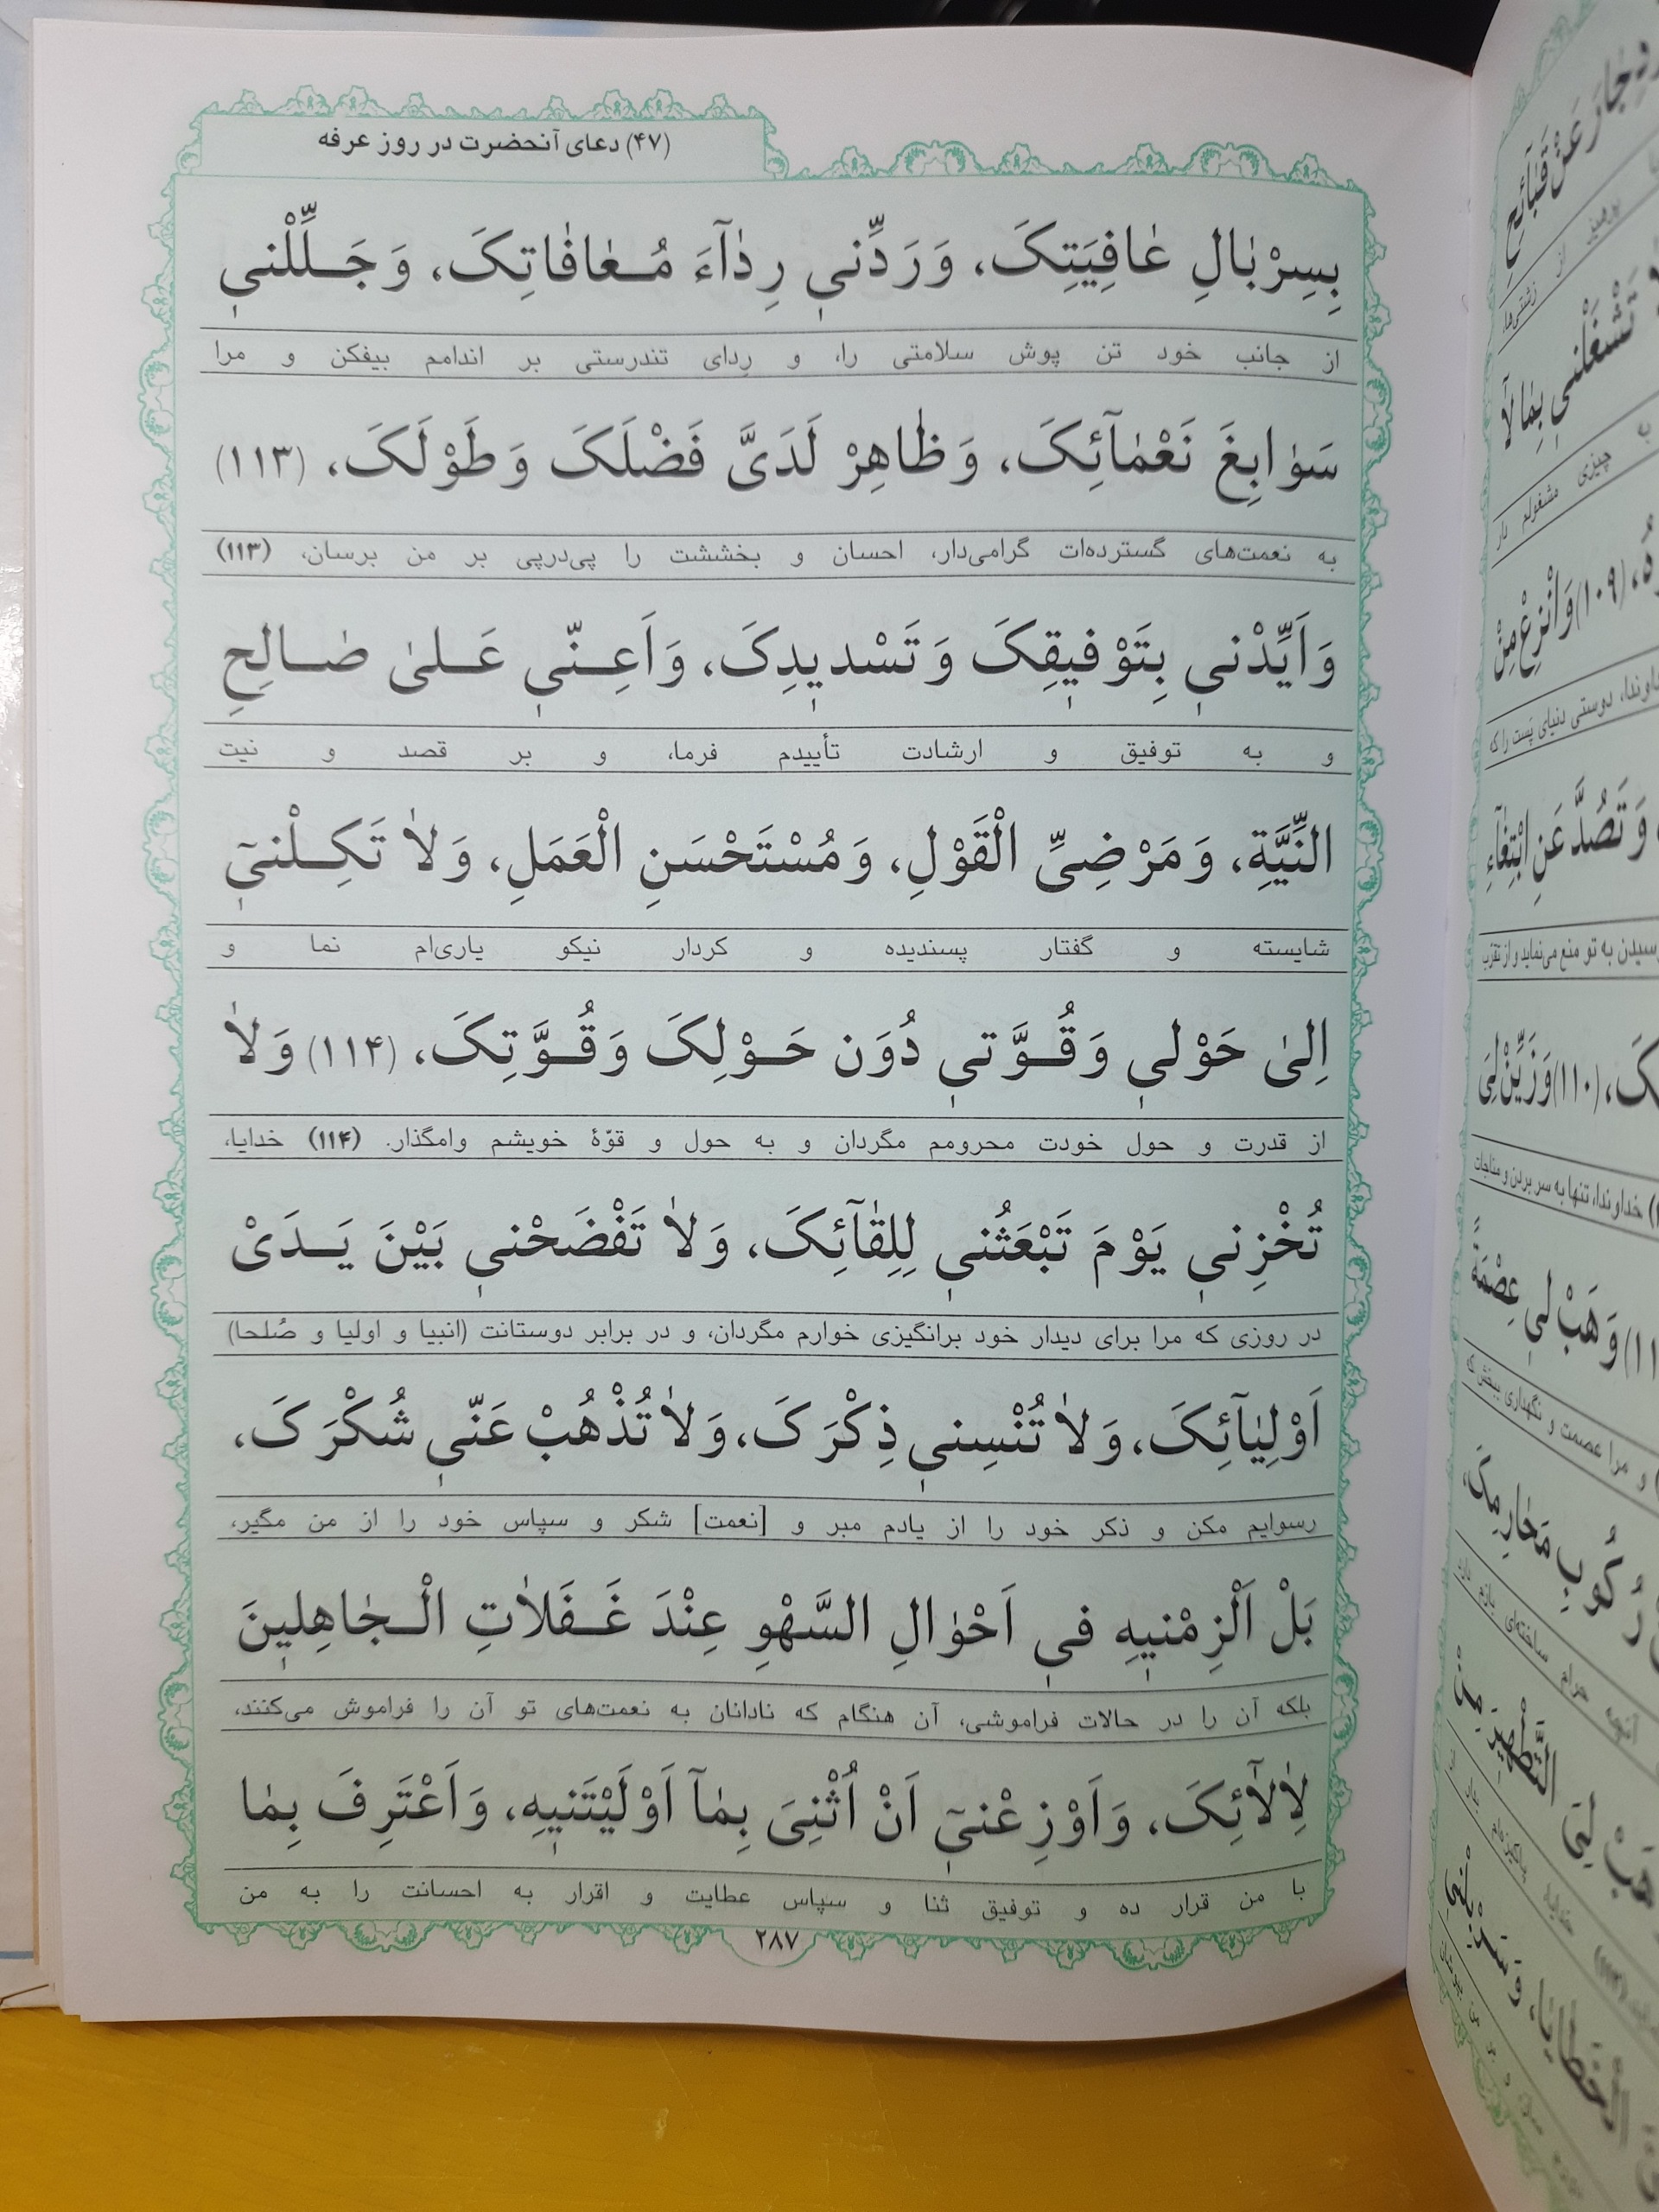 (۴۷) دعای آنحضرت در روز عرفه
بِسِرْبٰالِ عٰافِیَتِکَ، وَ رَدِّنیٖ رِدٰآءَ مُـعٰافٰاتِکَ، وَ جَـلِّلْنیٖ
از جانب خود تن پوش سلامتی را، و رِدای تندرستی بر اندامم بیفکن و مرا
سَوٰابِغَ نَعْمٰآئِکَ، وَ ظٰاهِرْ لَدَیَّ فَضْلَکَ وَ طَوْلَکَ، (۱۱۳)
به نعمت‌های گسترده‌ات گرامی‌دار، احسان و بخششت را پی‌درپی بر من برسان، (۱۱۳)
وَ اَیِّدْنیٖ بِتَوْفیٖقِکَ وَ تَسْدیٖدِکَ، وَ اَعِـنّیٖ عَـلیٰ صٰـالِحِ
و به توفیق و ارشادت تأییدم فرما، و بر قصد و نیت
النِّیَّةِ، وَ مَرْضِیِّ الْقَوْلِ، وَ مُسْتَحْسَنِ الْعَمَلِ، وَ لاٰ تَکِـلْنیٖٓ
شایسته و گفتار پسندیده و کردار نیکو یاری‌ام نما و
اِلیٰ حَوْلیٖ وَ قُـوَّتیٖ دُوَن حَـوْلِکَ وَ قُـوَّتِکَ، (۱۱۴) وَ لاٰ
از قدرت و حول خودت محرومم مگردان و به حول و قوّهٔ خویشم وامگذار. (۱۱۴) خدایا،
تُخْزِنیٖ یَوْمَ تَبْعَثُنیٖ لِلِقٰآئِکَ، وَ لاٰ تَفْضَحْنیٖ بَیْنَ یَـدَیْ
در روزی که مرا برای دیدار خود برانگیزی خوارم مگردان، و در برابر دوستانت (انبیا و اولیا و صُلحا)
اَوْلِیٰآئِکَ، وَ لاٰ تُنْسِنیٖ ذِکْرَکَ، وَ لاٰ تُذْهُبْ عَنّیٖ شُکْرَکَ،
رسوایم مکن و ذکر خود را از یادم مبر و [نعمت] شکر و سپاس خود را از من مگیر،
بَلْ اَلْزِمْنیٖهِ فیٖ اَحْوٰالِ السَّهْوِ عِنْدَ غَـفَلاٰتِ الْـجٰاهِلیٖنَ
بلکه آن را در حالات فراموشی، آن هنگام که نادانان به نعمت‌های تو آن را فراموش می‌کنند،
لِاٰلآٰئِکَ، وَ اَوْزِعْنیٖٓ اَنْ اُثْنِیَ بِمٰآ اَوْلَیْتَنیٖهِ، وَ اَعْتَرِفَ بِمٰا
با من قرار ده و توفیق ثنا و سپاس عطایت و اقرار به احسانت را به من
۲۸۷